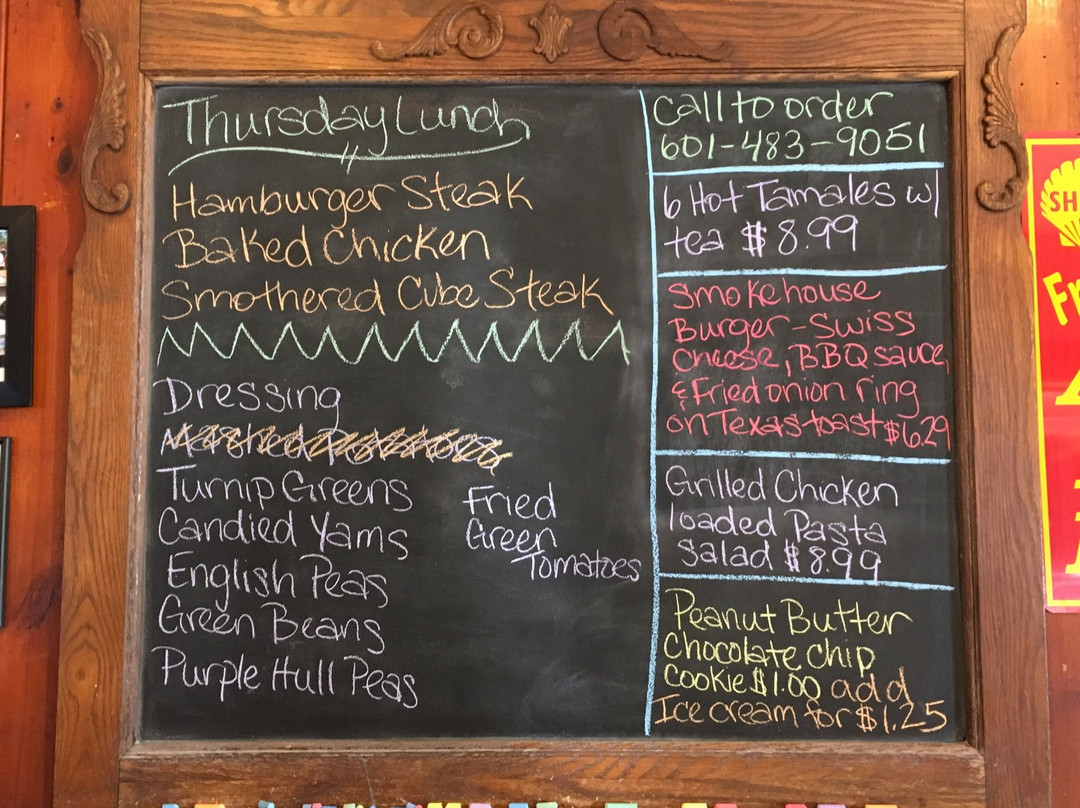 Thursday Lunch
Hamburger Steak
Baked Chicken
Smothered Cube Steak
Dressing
Mashed Potatoes
Turnip Greens
Candied Yams
English Peas
Green Beans
Purple Hull Peas
Fried
Green
Tomatoes
Call to order
601-483-9051
6 Hot Tamales w/
tea $8.99
Smokehouse
Burger - Swiss
Cheese, BBQ sauce,
& Fried onion ring
on Texas toast $6.29
Grilled Chicken
loaded Pasta
Salad $8.99
Peanut Butter
Chocolate chip
Cookie $1.00 add
Ice cream for $1.25
SH
Fr